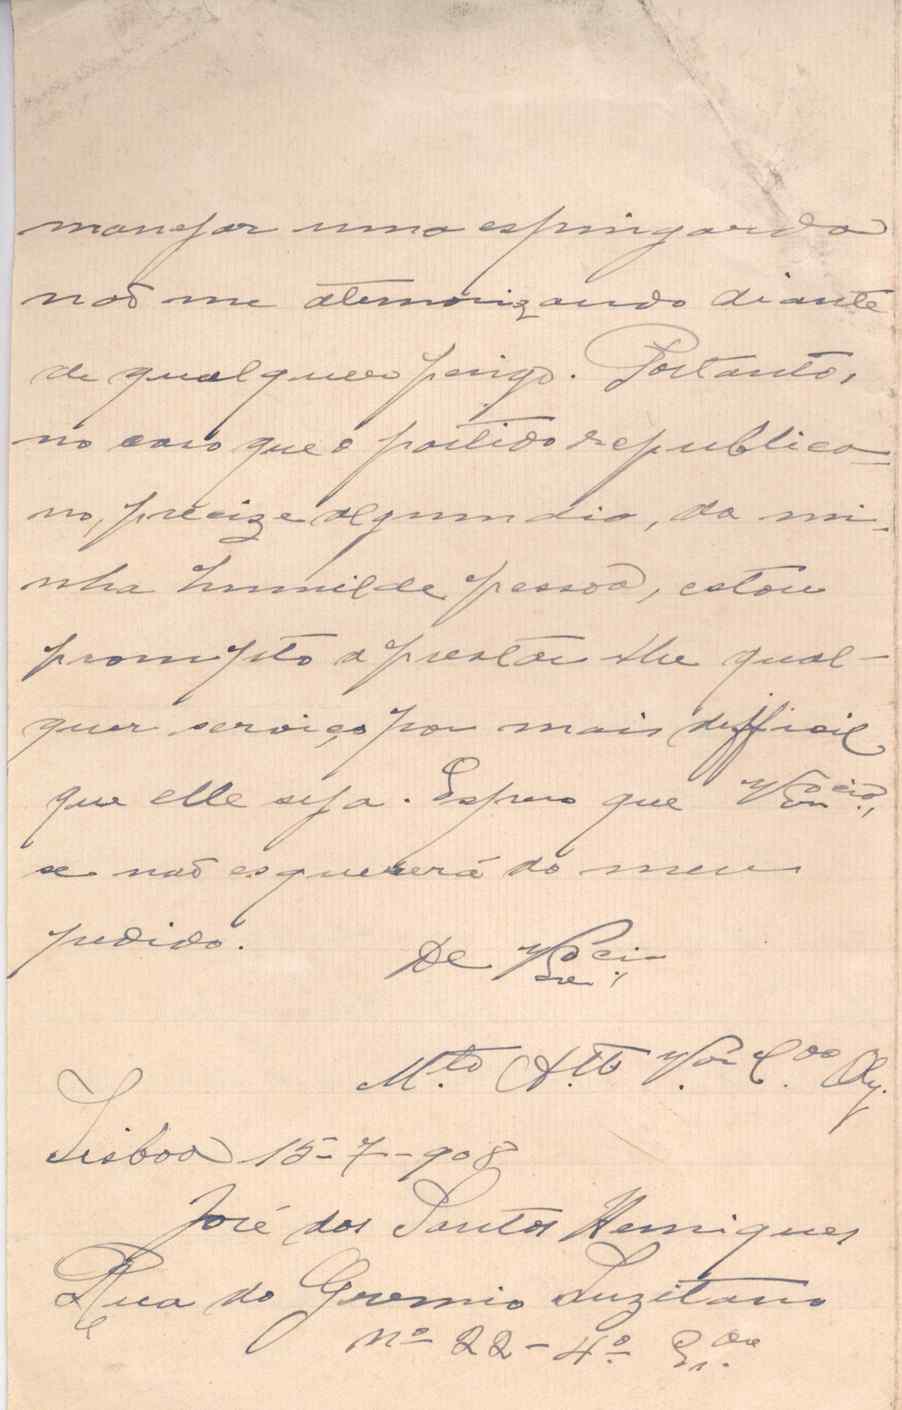 manejar uma espingarda
não me atemorizando diante
de qualquer perigo. Portanto,
no caso que o partido republica-
no, precize algum dia, da mi-
nha humilde pessoa, estou
prompto a prestar-lhe qual-
quer serviço por mais difficil
que elle seja. Espero que V. Ex.cia,
se não esquecerá do meu
pedido.
De V. Ex.cia
M.to Att.o V.or C.do Obg.
Lisboa 15-7-908
José dos Santos Henriques
Rua do Gremio Luzitano
nº 22-4º